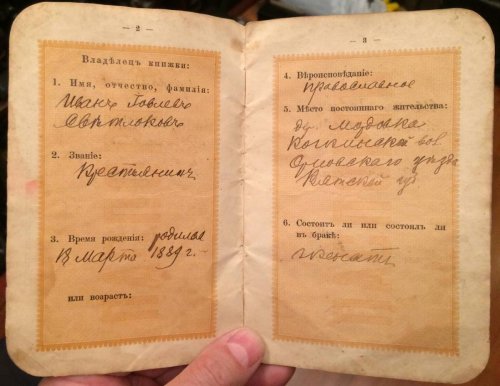 — 2 —
Владѣлецъ книжки:
1. Имя, отчество, фамилія:
Иванъ
Свѣтлоковъ
2. Званіе:
Крестьянинъ
3. Время рожденія: родился
18 Марта 1889 г.
или возрастъ:
— 3 —
4. Вѣроисповѣданіе:
православное
5. Мѣсто постояннаго жительства:
вол.
Орловскаго уѣзда
Вятской губ
6. Состоитъ ли или состоялъ ли
въ бракѣ:
женатъ